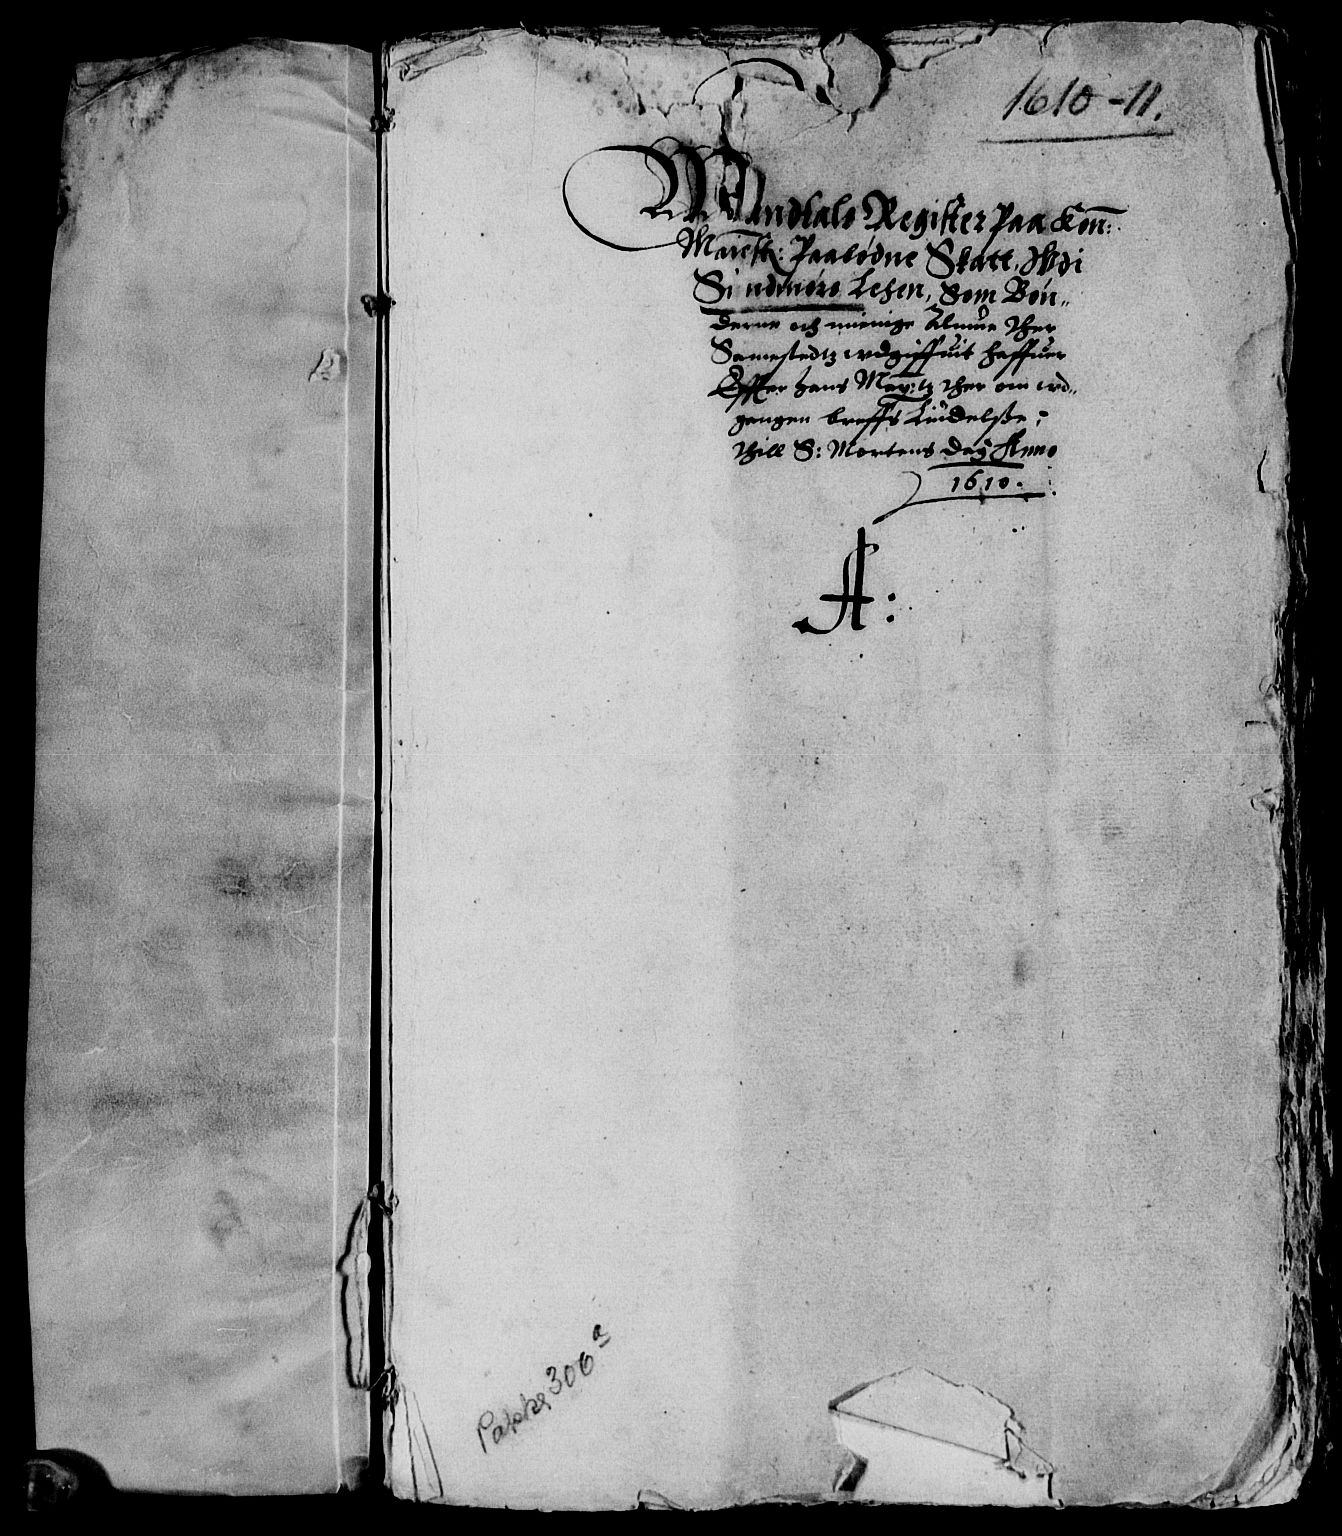 1610-11.
Mandtals Register Paa Kon:
Maiest: Paabødne Skatt, Wdi
Sindmørs Lehen, Som Bøn„
derne och menige Almue ther
Samestedtz wdgiffuit haffuer
Effter hans May:tz ther om wd„
gangen breffs Liudelsse;
thill S: Mortens Dag Anno
1610.
A:
Pakke 306 a